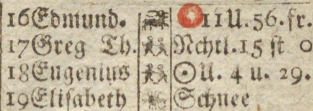 16 Edmund. 11 U. 56. fr.
17 Greg Th. Nchtl. 15 st 0
18 Eugenius ☉ U. 4 u. 29.
19 Elisabeth Schnee